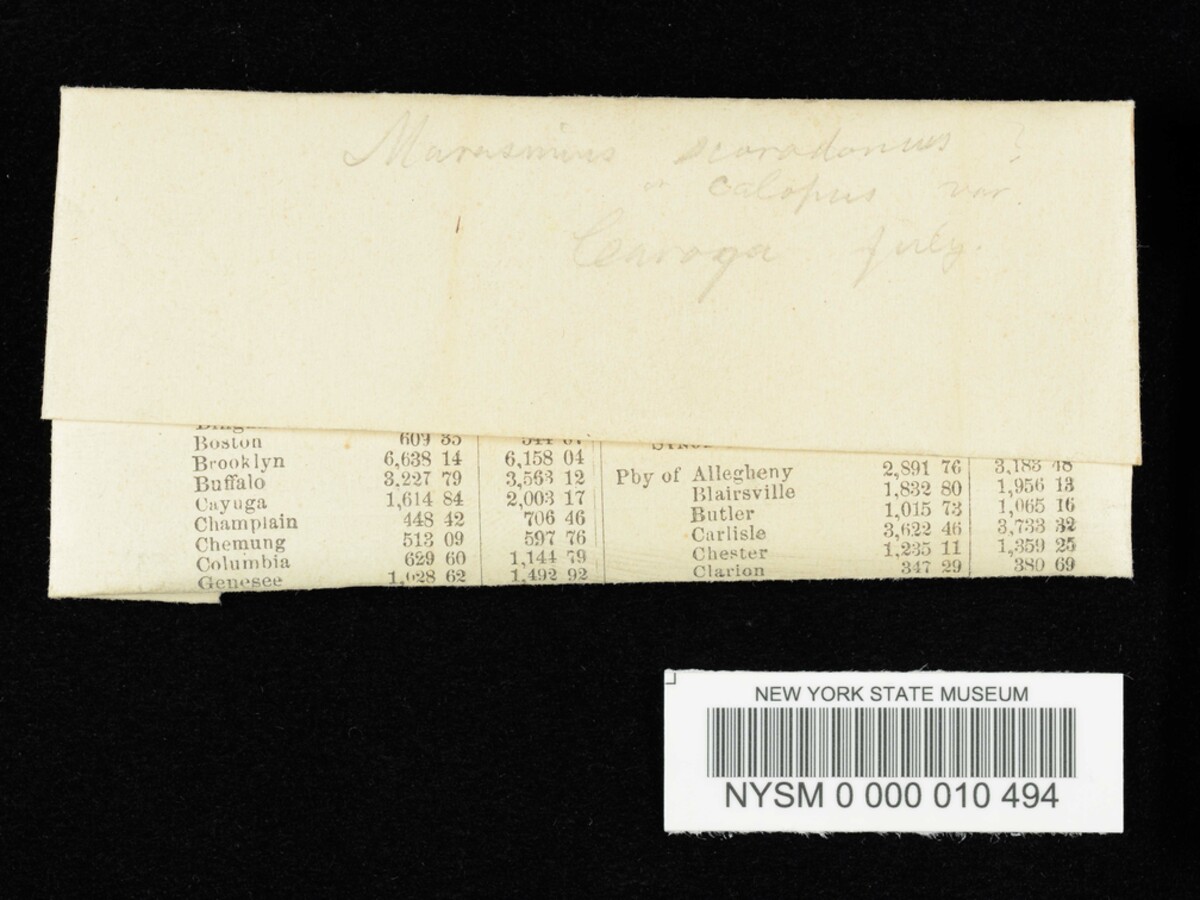 Marasmius scorodonius ?
or calopus var.
Caroga July.
Boston 609 35 544 07
Brooklyn 6,638 14 6,158 04
Buffalo 3,227 79 3,563 12
Cayuga 1,614 84 2,003 17
Champlain 448 42 706 46
Chemung 513 09 597 76
Columbia 629 60 1,144 79
Genesee 1,028 62 1,492 92
Pby of Allegheny 2,891 76 3,183 48
Blairsville 1,832 80 1,956 13
Butler 1,015 73 1,065 16
Carlisle 3,622 46 3,733 32
Chester 1,235 11 1,359 25
Clarion 347 29 380 69
NEW YORK STATE MUSEUM
NYSM 0 000 010 494